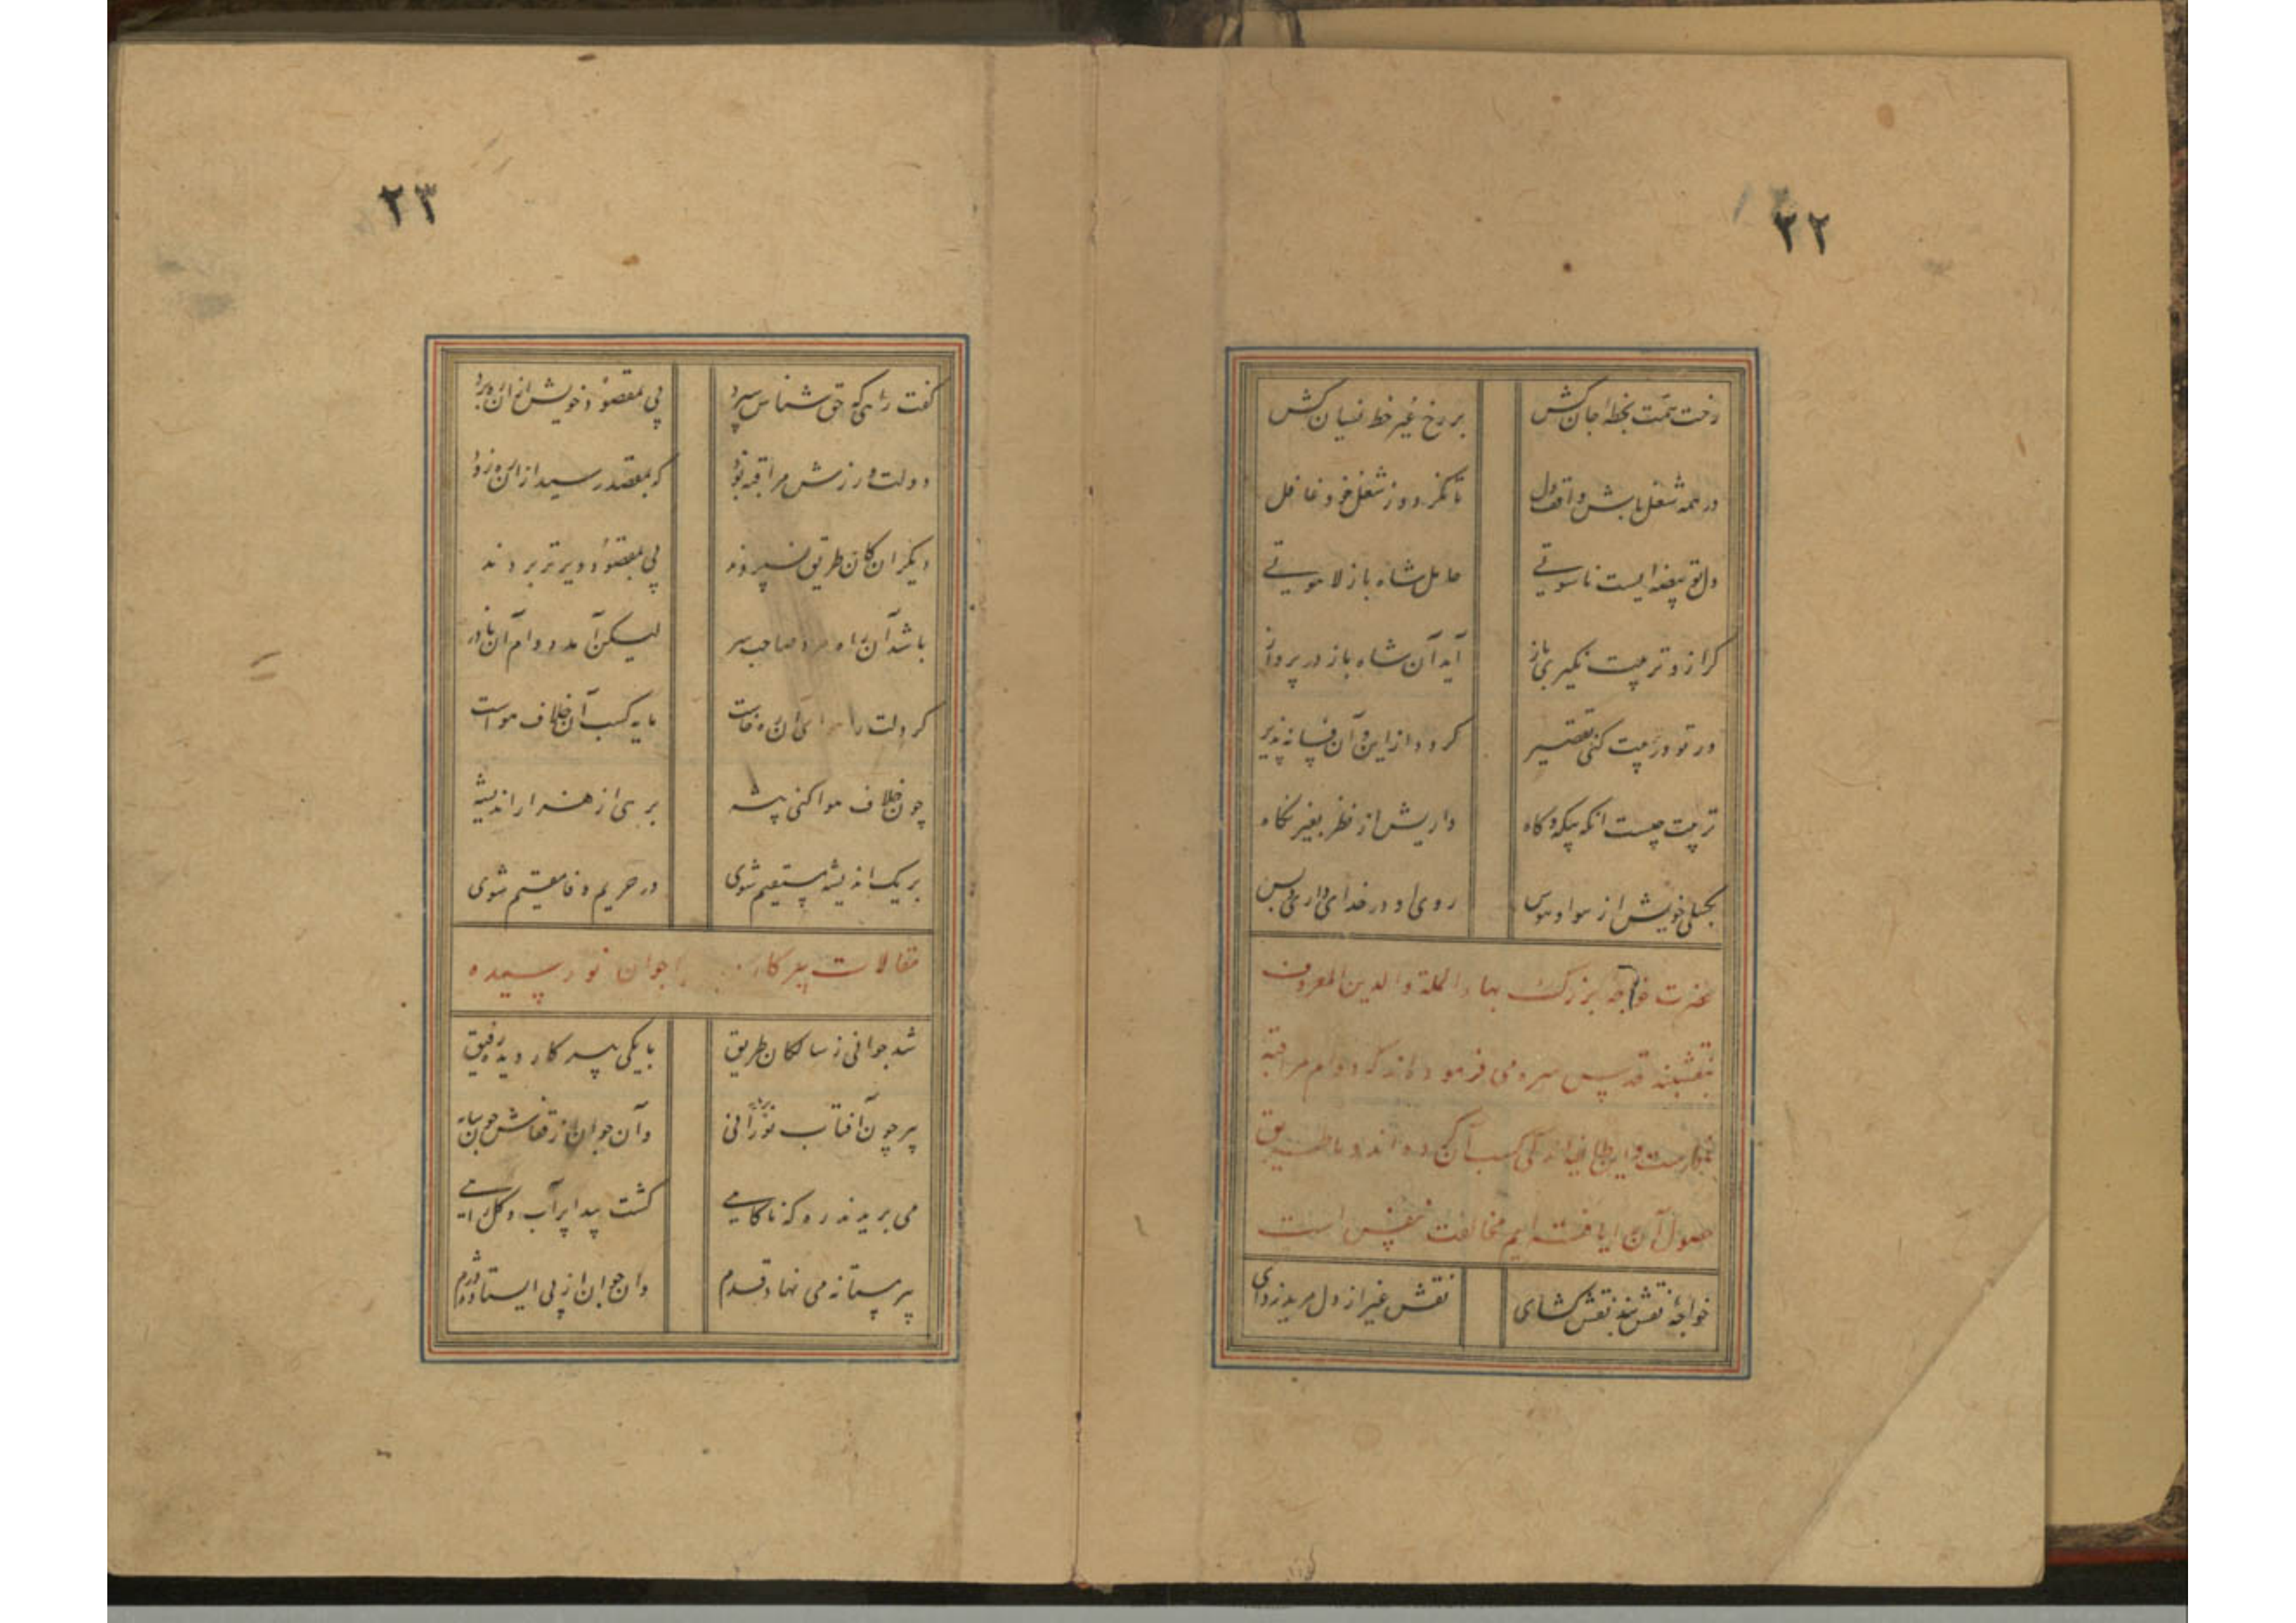 ۲۲
رخت همت بخطه جان کش بر رخ غیر خط نسیان کش
در همه شغل باش واقف دل تا نگردد ز شغل خود غافل
دل تو بیضه ایست ناسوتی حامل شاه باز لاهوتی
گر ازو تربیت نگیری باز آید آن شاه باز در پرواز
ور تو در تربیت کنی تقصیر گردد از این و آن فسانه پذیر
تربیت چیست آنکه بیگه و گاه داریش از نظر بغیر نگاه
بگسلی خویش از هوا و هوس روی او در خدای داری و بس
حضرت خواجه بزرگ بهاء الملة والدین المعروف
بنقشبند قدس سره می فرموده اند که دوام مراقبه
آن کرده اند و ما طریق
حصول آن را یافته ایم مخالفت نفس است
خواجه نقشبند نقش گشای نقش غیر از دل مرید زدای
۲۳
گفت راهی که حق شناس سپرد پی بمقصود خویش از آن ره برد
دولت ورزش مراقبه بود که بمقصد رسید از آن ره زود
دیگران کان طریق نسپردند پی بمقصود دیرتر بردند
باشد آن راه مرد صاحب سر لیکن آمد دوام آن نادر
گر دلت را هوای آن ره خاست مایه کسب آن خلاف هواست
چون خلاف هوا کنی پیشه برهی از هزار اندیشه
بر یک اندیشه مستقیم شوی در حریم وفا مقیم شوی
مقالات پیر کار با جوان نو رسیده
شد جوانی ز سالکان طریق با یکی پیر کار دیده رفیق
پیر چون آفتاب نورانی وان جوان از قفاش چون سایه
می بریدند ره که ناگاهی گشت پیدا پر آب و گل راهی
پیر مستانه می نهاد قدم وان جوان از پی ایستاده دژم